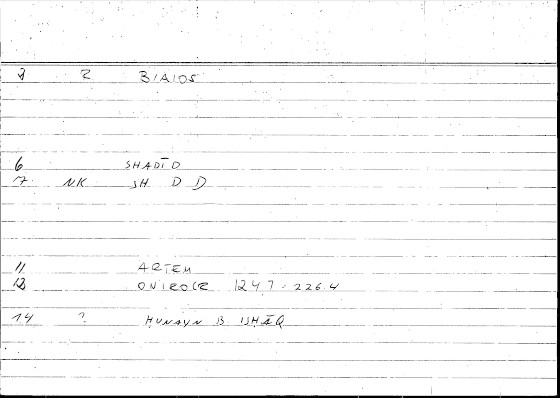 8 2 BIAIOS
6 SHADĪD
7. NK SH D D
11 ARTEM
12 ONIROCR 1247 - 226.4
14 ? HUNAYN B. ISHĀQ